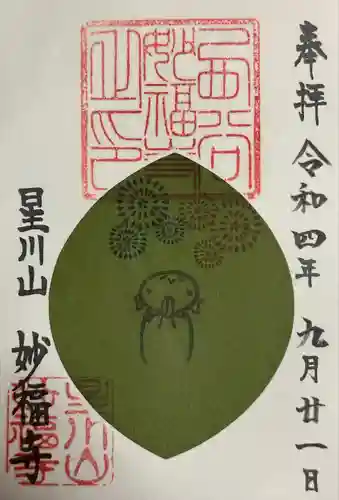 奉拝 令和四年 九月廿一日
星川山 妙福寺